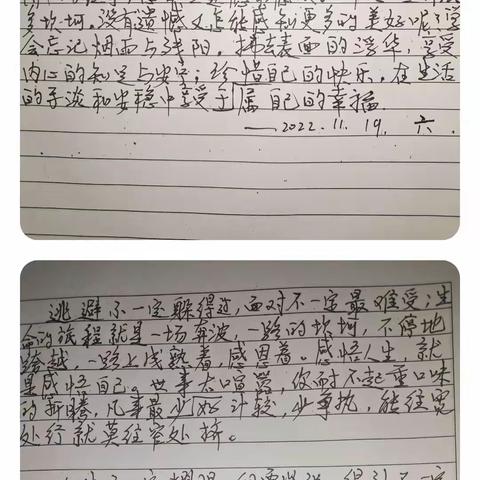 多坎坷。没有遗憾又怎能感知更多的美好呢？学
会忘记烟雨与残阳，拂去表面的浮华，享受
内心的知足与安宁；珍惜自己的快乐，在生活
的平淡和安稳中享受于属自己的幸福。
——2022.11.19. 六.
逃避不一定躲得过，面对不一定最难受；生
命的旅程就是一场奔波，一路的坎坷，不停地
跨越，一路上成熟着，感恩着。感悟人生，就
是感悟自己。世事大
耐不起重口味
的折腾，凡事最少
计较，少争执，能往宽
处行就莫往窄处挤。